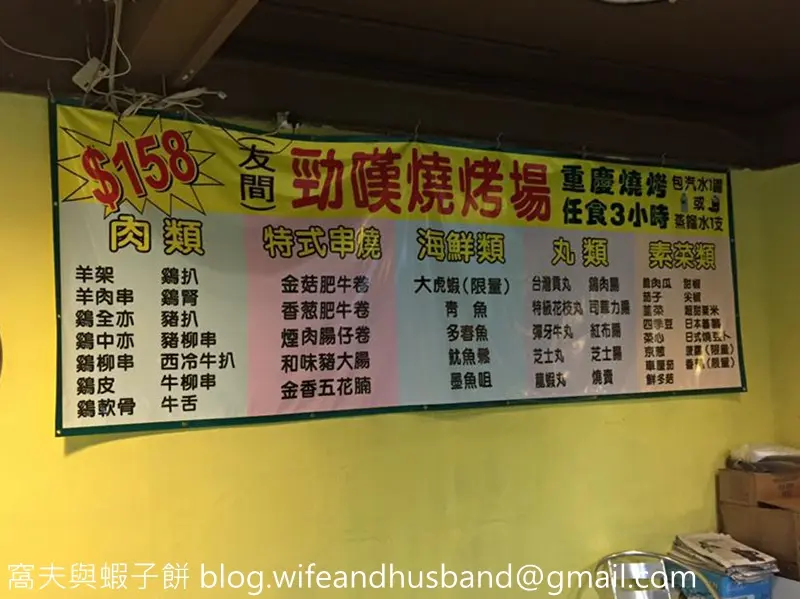 $158
(友間)
勁嘆燒烤場
重慶燒烤
任食3小時
包汽水1罐
或
蒸餾水1支
肉類
羊架
羊肉串
鷄全亦
鷄中亦
鷄柳串
鷄皮
鷄軟骨
鷄扒
鷄腎
豬扒
豬柳串
西冷牛扒
牛柳串
牛舌
特式串燒
金菇肥牛卷
香葱肥牛卷
煙肉腸仔卷
和味豬大腸
金香五花腩
海鮮類
大虎蝦(限量)
青魚
多春魚
魷魚鬚
墨魚咀
丸類
台灣貢丸
特級花枝丸
彈牙牛丸
芝士丸
龍蝦丸
鷄肉腸
司華力腸
紅布腸
芝士腸
燒賣
素菜類
翠肉瓜
茄子
韮菜
四季豆
菜心
京葱
車厘茄
鮮冬菇
甜椒
尖椒
超甜粟米
日本蕃薯
日式燒豆卜
菠蘿(限量)
香蕉(限量)
窩夫與蝦子餅 blog.wifeandhusband@gmail.com